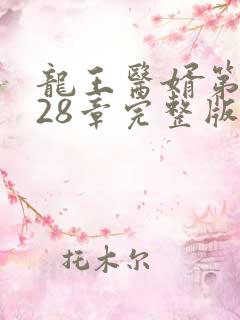 龍王醫婿第
28章完整版
托木尔